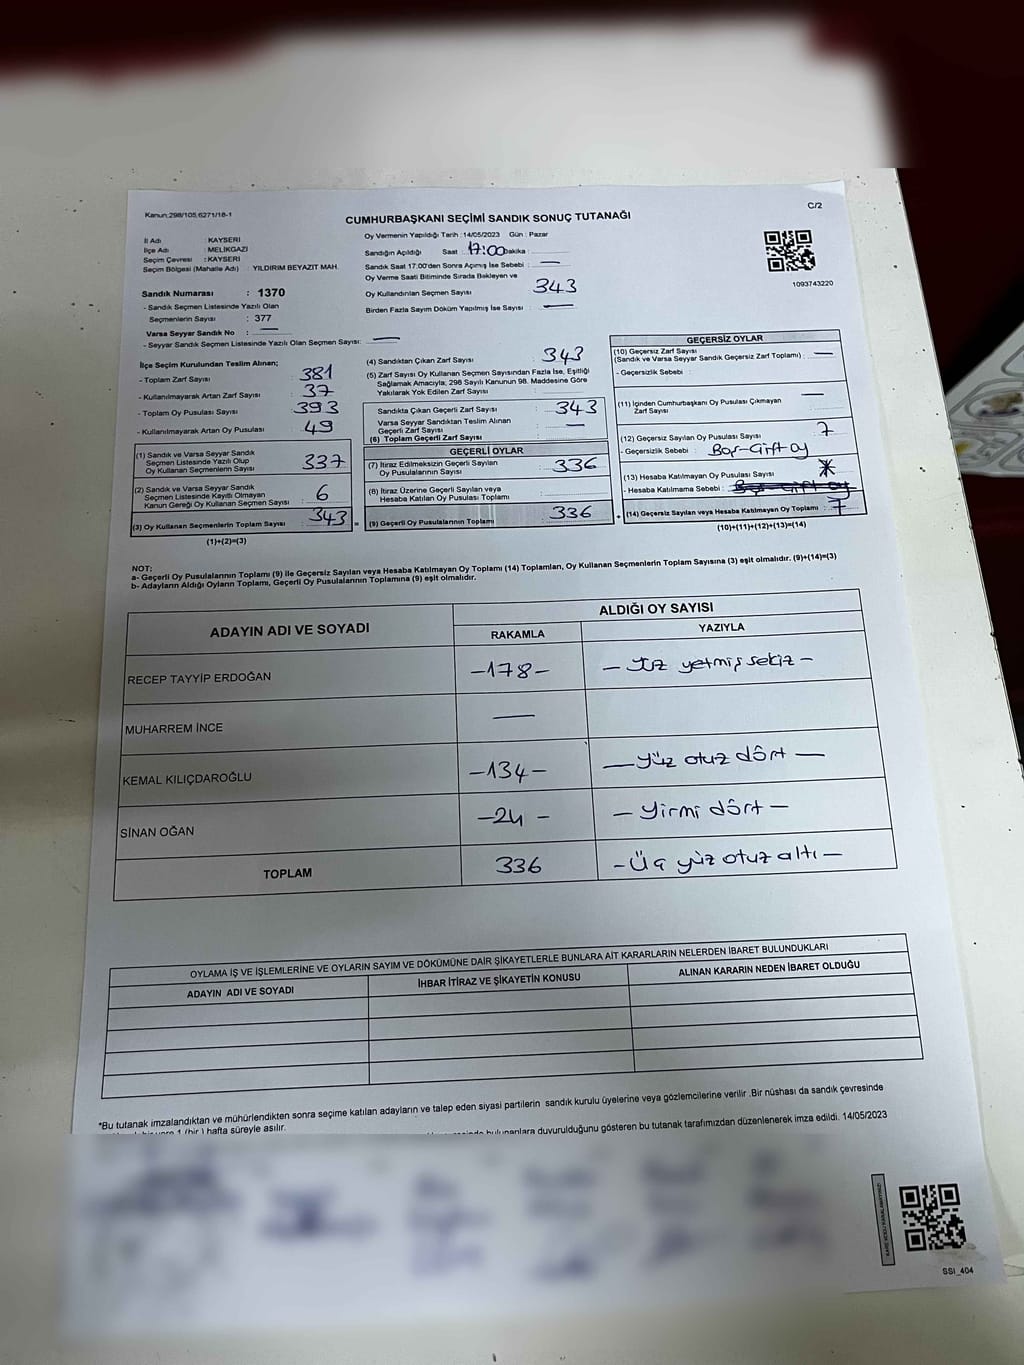 Kanun:298/105,6271/18-1
C/2
CUMHURBAŞKANI SEÇİMİ SANDIK SONUÇ TUTANAĞI
İl Adı : KAYSERİ
İlçe Adı : MELİKGAZİ
Seçim Çevresi : KAYSERİ
Seçim Bölgesi (Mahalle Adı) : YILDIRIM BEYAZIT MAH.
Sandık Numarası : 1370
- Sandık Seçmen Listesinde Yazılı Olan
Seçmenlerin Sayısı : 377
Varsa Seyyar Sandık No : —
- Seyyar Sandık Seçmen Listesinde Yazılı Olan Seçmen Sayısı: —
Oy Vermenin Yapıldığı Tarih : 14/05/2023 Gün : Pazar
Sandığın Açıldığı Saat 17:00 Dakika :
Sandık Saat 17:00'den Sonra Açımış İse Sebebi : —
Oy Verme Saati Bitiminde Sırada Bekleyen ve
Oy Kullandırılan Seçmen Sayısı 343
Birden Fazla Sayım Döküm Yapılmış İse Sayısı : —
1093743220
İlçe Seçim Kurulundan Teslim Alınan;
- Toplam Zarf Sayısı 381
- Kullanılmayarak Artan Zarf Sayısı 37
- Toplam Oy Pusulası Sayısı 393
- Kullanılmayarak Artan Oy Pusulası 49
(1) Sandık ve Varsa Seyyar Sandık
Seçmen Listesinde Yazılı Olup
Oy Kullanan Seçmenlerin Sayısı 337
(2) Sandık ve Varsa Seyyar Sandık
Seçmen Listesinde Kayıtlı Olmayan
Kanun Gereği Oy Kullanan Seçmen Sayısı 6
(3) Oy Kullanan Seçmenlerin Toplam Sayısı 343 =
(1)+(2)=(3)
(4) Sandıktan Çıkan Zarf Sayısı 343
(5) Zarf Sayısı Oy Kullanan Seçmen Sayısından Fazla İse, Eşitliği
Sağlamak Amacıyla; 298 Sayılı Kanunun 98. Maddesine Göre
Yakılarak Yok Edilen Zarf Sayısı
Sandıkta Çıkan Geçerli Zarf Sayısı 343
Varsa Seyyar Sandıktan Teslim Alınan
Geçerli Zarf Sayısı —
(6) Toplam Geçerli Zarf Sayısı
GEÇERLİ OYLAR
(7) İtiraz Edilmeksizin Geçerli Sayılan
Oy Pusulalarının Sayısı 336
(8) İtiraz Üzerine Geçerli Sayılan veya
Hesaba Katılan Oy Pusulası Toplamı
(9) Geçerli Oy Pusulalarının Toplamı 336 +
GEÇERSİZ OYLAR
(10) Geçersiz Zarf Sayısı
(Sandık ve Varsa Seyyar Sandık Geçersiz Zarf Toplamı) : —
- Geçersizlik Sebebi :
(11) İçinden Cumhurbaşkanı Oy Pusulası Çıkmayan —
Zarf Sayısı
(12) Geçersiz Sayılan Oy Pusulası Sayısı 7
- Geçersizlik Sebebi : Boş-Çift oy
(13) Hesaba Katılmayan Oy Pusulası Sayısı
- Hesaba Katılmama Sebebi : Boş-Çift oy
(14) Geçersiz Sayılan veya Hesaba Katılmayan Oy Toplamı : 7
(10)+(11)+(12)+(13)=(14)
NOT;
a- Geçerli Oy Pusulalarının Toplamı (9) ile Geçersiz Sayılan veya Hesaba Katılmayan Oy Toplamı (14) Toplamları, Oy Kullanan Seçmenlerin Toplam Sayısına (3) eşit olmalıdır. (9)+(14)=(3)
b- Adayların Aldığı Oyların Toplamı, Geçerli Oy Pusulalarının Toplamına (9) eşit olmalıdır.
ADAYIN ADI VE SOYADI
ALDIĞI OY SAYISI
RAKAMLA YAZIYLA
RECEP TAYYİP ERDOĞAN -178- - Yüz yetmiş sekiz -
MUHARREM İNCE —
KEMAL KILIÇDAROĞLU -134- — Yüz otuz dört —
SİNAN OĞAN -24 - - Yirmi dört -
TOPLAM 336 - Üç yüz otuz altı -
OYLAMA İŞ VE İŞLEMLERİNE VE OYLARIN SAYIM VE DÖKÜMÜNE DAİR ŞİKAYETLERLE BUNLARA AİT KARARLARIN NELERDEN İBARET BULUNDUKLARI
ADAYIN ADI VE SOYADI İHBAR İTİRAZ VE ŞİKAYETİN KONUSU ALINAN KARARIN NEDEN İBARET OLDUĞU
*Bu tutanak imzalandıktan ve mühürlendikten sonra seçime katılan adayların ve talep eden siyasi partilerin sandık kurulu üyelerine veya gözlemcilerine verilir .Bir nüshası da sandık çevresinde
1 (bir ) hafta süreyle asılır.
bulunanlara duyurulduğunu gösteren bu tutanak tarafımızdan düzenlenerek imza edildi. 14/05/2023
SSI_404